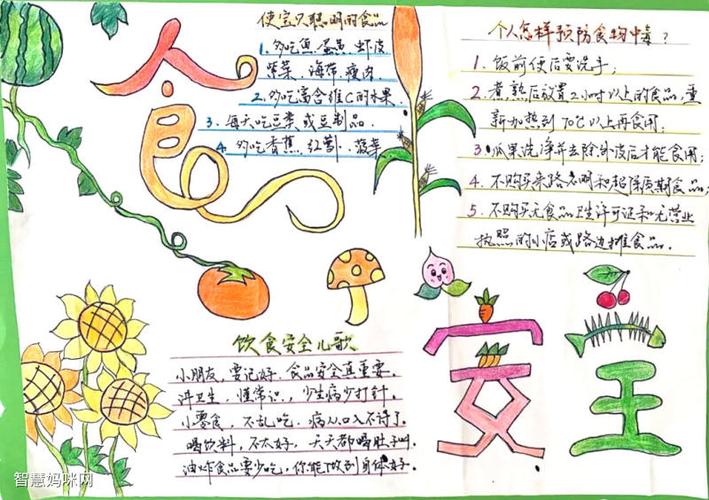 食
使宝贝聪明的食品
1、多吃鱼、蛋黄、虾皮
紫菜、海带、瘦肉
2、多吃富含维C的水果
3、每天吃豆类或豆制品
4、多吃香蕉、红薯、菠菜
个人怎样预防食物中毒?
1、饭前便后要洗手;
2、煮熟后放置2小时以上的食品,重
新加热到70℃以上再食用;
3、瓜果洗净并去除外皮后才能食用;
4、不购买来路不明和超保质期食品;
5、不购买无食品卫生许可证和无营业
执照的小店或路边摊食品。
饮食安全儿歌
小朋友,要记好,食品安全真重要。
讲卫生,懂常识,少生病少打针。
小零食,不乱吃,病从口入不得了。
喝饮料,不太好,天天都喝肚子叫。
油炸食品要少吃,你能做到身体好。
安全
智慧妈咪网